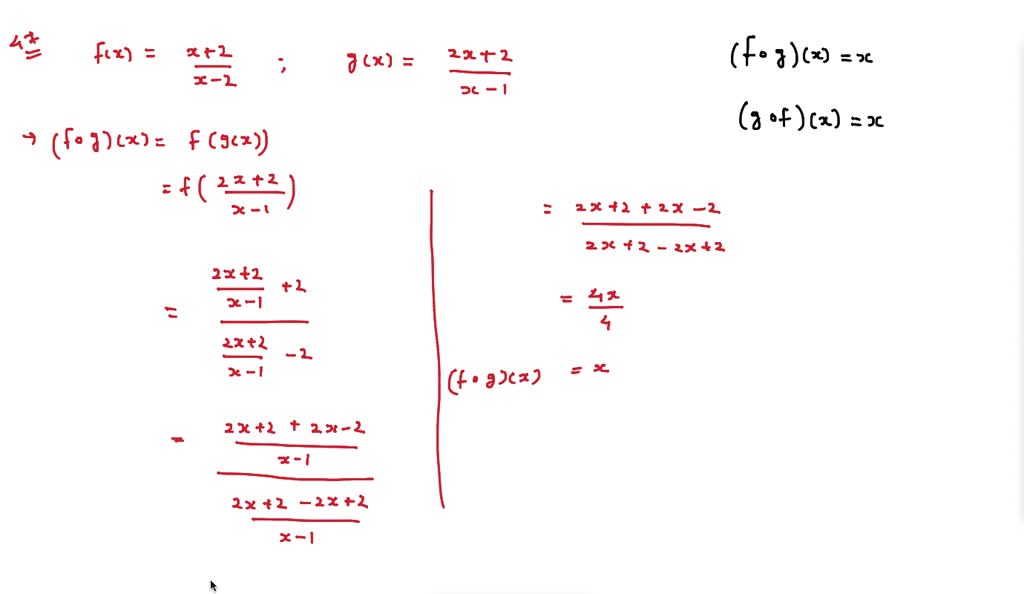 47
f(x) = x+2 / x-2 ; g(x) = 2x+2 / x-1
→ (f∘g)(x) = f(g(x))
= f( 2x+2 / x-1 )
= 2x+2 / x-1 + 2
2x+2 / x-1 - 2
= 2x+2 + 2x-2 / x-1
2x+2 - 2x+2 / x-1
= 2x+2 + 2x-2 / 2x+2 - 2x+2
= 4x / 4
(f∘g)(x) = x
(f∘g)(x) = x
(g∘f)(x) = x